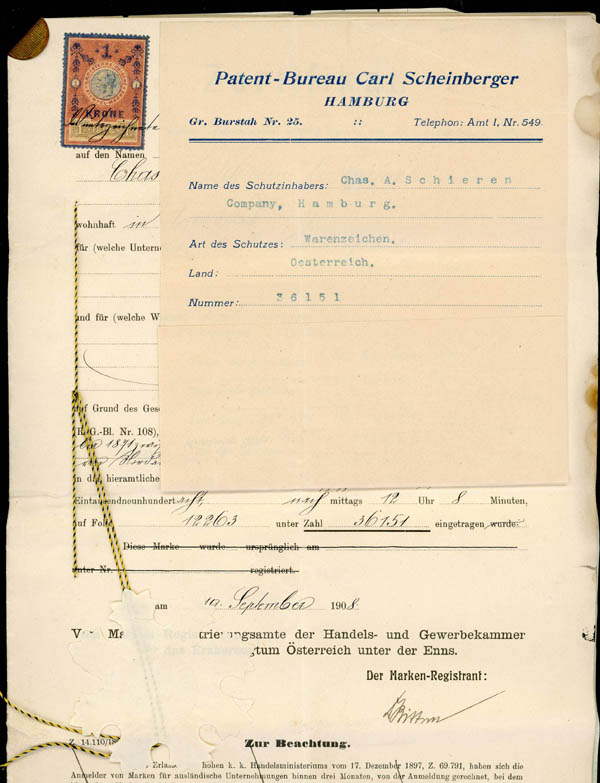 1
KRONE
Patent-Bureau Carl Scheinberger
HAMBURG
Gr. Burstah Nr. 25. :: Telephon: Amt I, Nr. 549.
Name des Schutzinhabers: Chas. A. Schieren
Company, Hamburg.
Art des Schutzes: Warenzeichen.
Land: Oesterreich.
Nummer: 36151
auf den Namen
Chas
wohnhaft in
für (welche Unterne
und für (welche W
auf Grund des Gese
(R.-G.-Bl. Nr. 108),
in die hieramtliche
Eintausendneunhundert acht, nach mittags 12 Uhr 8 Minuten,
auf Folio 12263 unter Zahl 36151 eingetragen wurde.
Diese Marke wurde ursprünglich am
unter Nr. registriert.
am 10. September 1908.
Vom Ma trierungsamte der Handels- und Gewerbekammer
tum Österreich unter der Enns.
Der Marken-Registrant:
Zur Beachtung.
Z. 14.110/18
Erlaß hohen k. k. Handelsministeriums vom 17. Dezember 1897, Z. 69.791, haben sich die
Anmelder von Marken für ausländische Unternehmungen binnen drei Monaten, von der Anmeldung gerechnet, bei dem